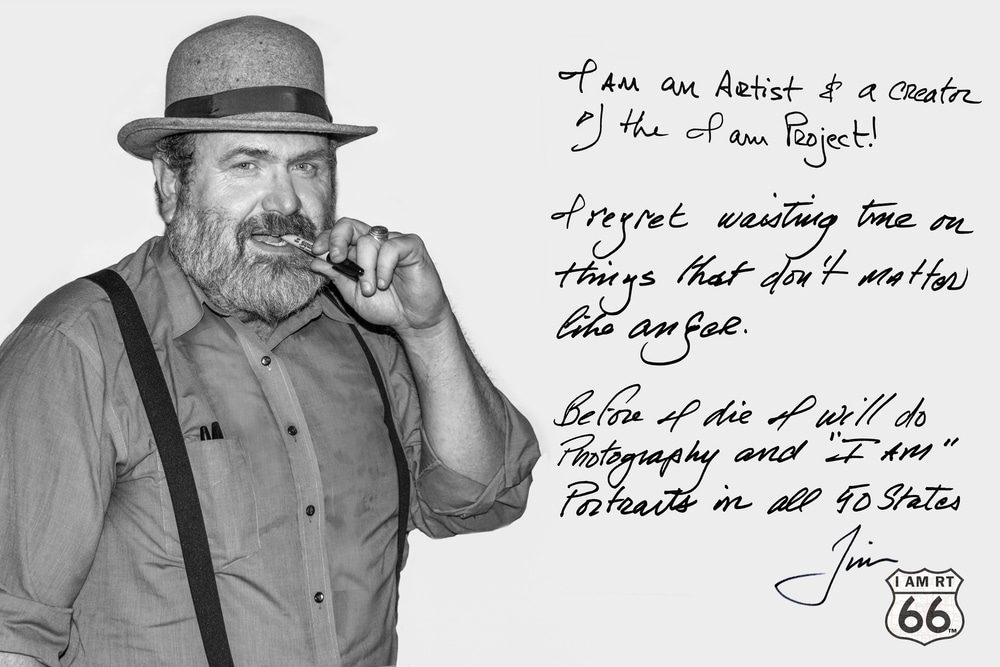 I AM an Artist & a Creator
of the I am Project!
I regret waisting time on
things that don't matter
like anger.
Before I die I will do
Photography and "I AM"
Portraits in all 50 States
Jim
I AM RT
66
TM